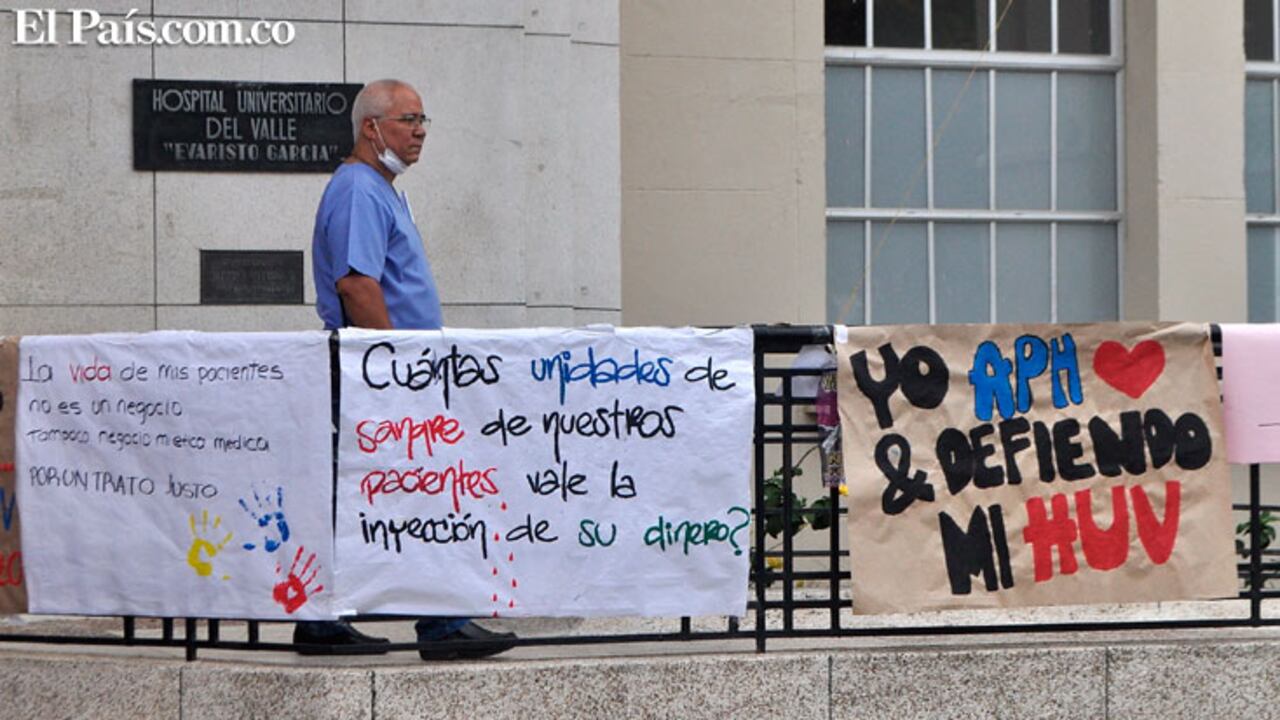 El País.com.co
HOSPITAL UNIVERSITARIO
DEL VALLE
"EVARISTO GARCIA"
La vida de mis pacientes
no es un negocio
Tampoco negocio mi etica medica
POR UN TRATO JUSTO
Cuántas unidades de
sangre de nuestros
pacientes vale la
inyección de su dinero?
YO APH
& DEFIENDO
MI HUV